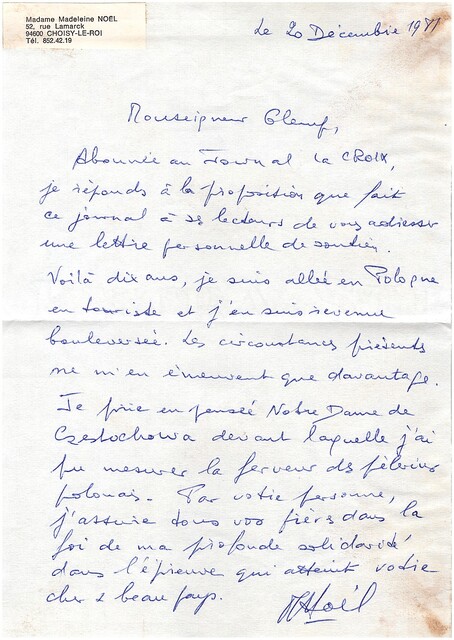 Madame Madeleine NOËL
52, rue Lamarck
94600 CHOISY-LE-ROI
Tél. 852.42.19
Le 20 Décembre 1981
Monseigneur Glemp,
Abonnée au Journal la CROIX,
je réponds à la proposition que fait
ce journal à ses lecteurs de vous adresser
une lettre personnelle de soutien.
Voilà dix ans, je suis allée en Pologne
en touriste et j'en suis revenue
bouleversée. Les circonstances présentes
ne m'en émeuvent que davantage.
Je prie en pensée Notre Dame de
Czestochowa devant laquelle j'ai
pu mesurer la ferveur des pèlerins
polonais. Par votre personne,
j'assure tous vos frères dans la
foi de ma profonde solidarité
dans l'épreuve qui atteint votre
cher & beau pays.
MNoël